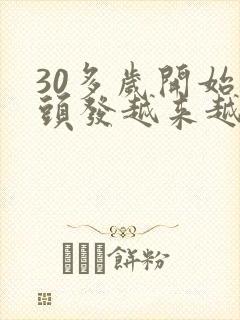 30多歲開始
頭發越來越
餅粉